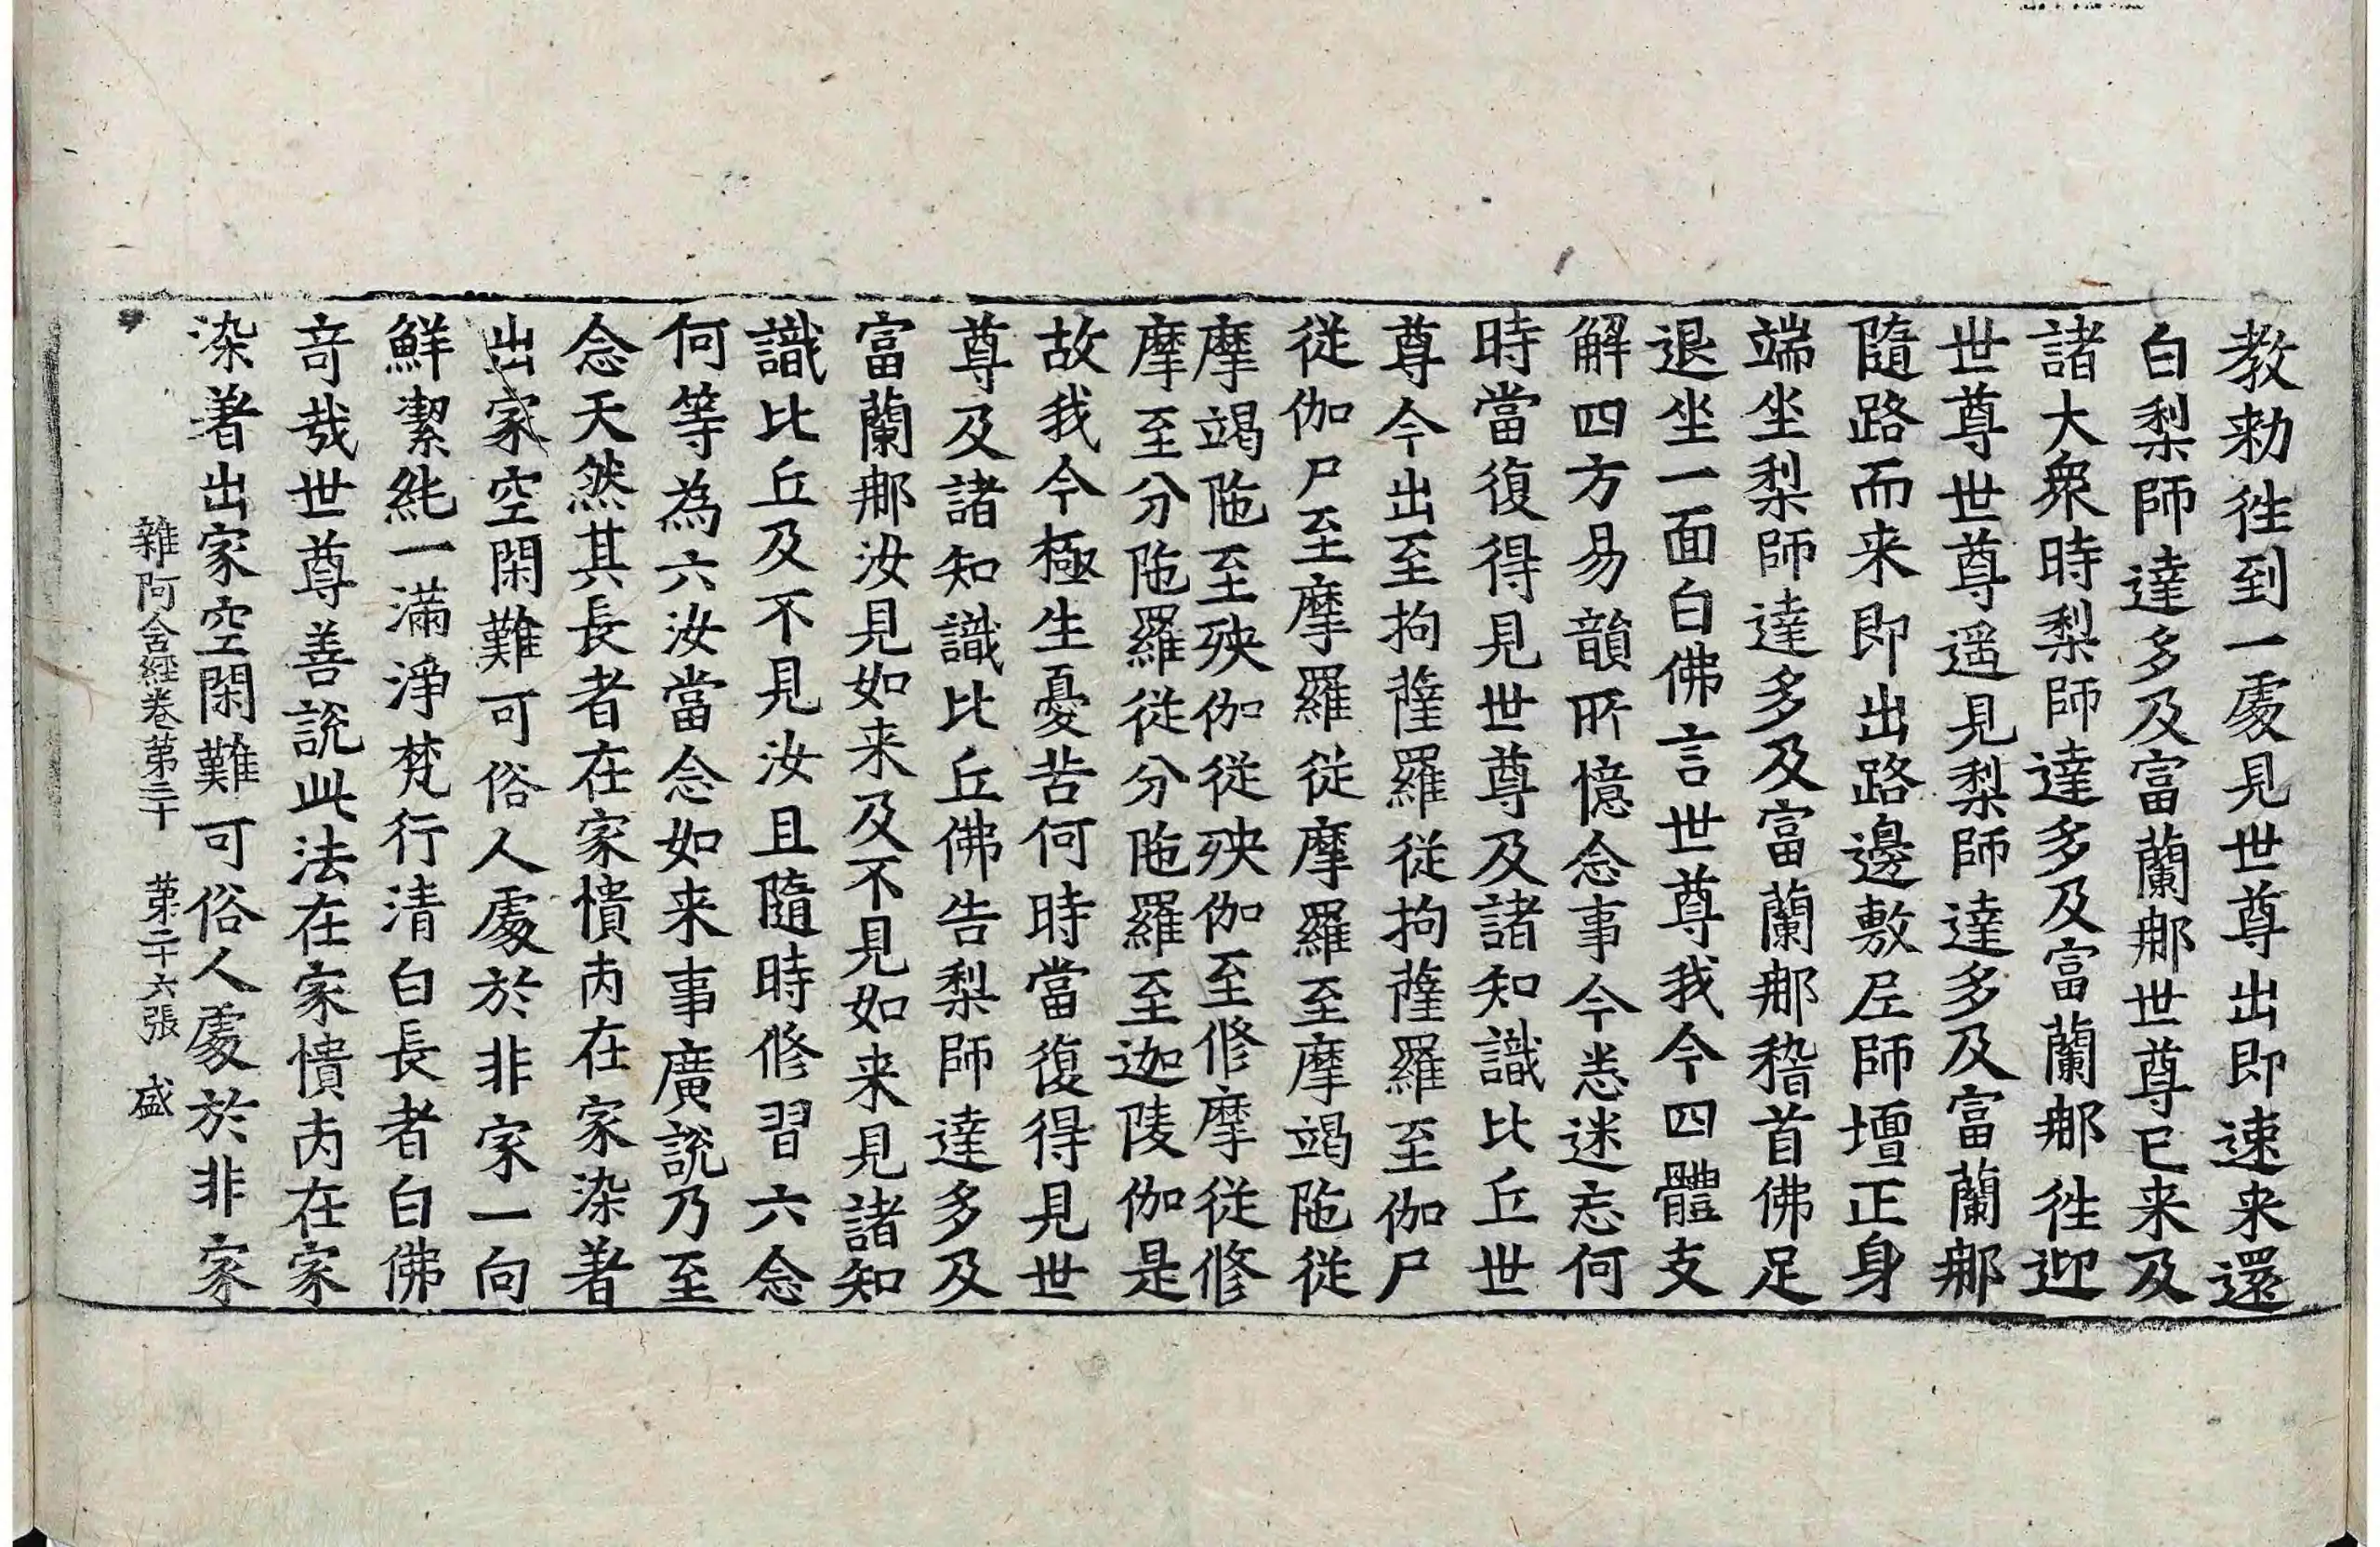 教勑徃到一處見世尊出即速来還
白梨師達多及富蘭那世尊已来及
諸大衆時梨師達多及富蘭那徃迎
世尊世尊遥見梨師達多及富蘭那
隨路而来即出路邊敷尼師壇正身
端坐梨師達多及富蘭那稽首佛足
退坐一面白佛言世尊我今四體支
解四方易韻所憶念事今悉迷忘何
時當復得見世尊及諸知識比丘世
尊今出至拘薩羅從拘薩羅至伽尸
從伽尸至摩羅從摩羅至摩竭陁從
摩竭陁至殃伽從殃伽至修摩從修
摩至分陁羅從分陁羅至迦陵伽是
故我今極生憂苦何時當復得見世
尊及諸知識比丘佛告梨師達多及
富蘭那汝見如来及不見如来見諸知
識比丘及不見汝且隨時修習六念
何等為六汝當念如来事廣說乃至
念天然其長者在家憒内在家染著
出家空閑難可俗人處於非家一向
鮮潔純一滿淨梵行清白長者白佛
竒哉世尊善說此法在家憒内在家
染著出家空閑難可俗人處於非家
雜阿含経卷第三十　第二十六張　盛